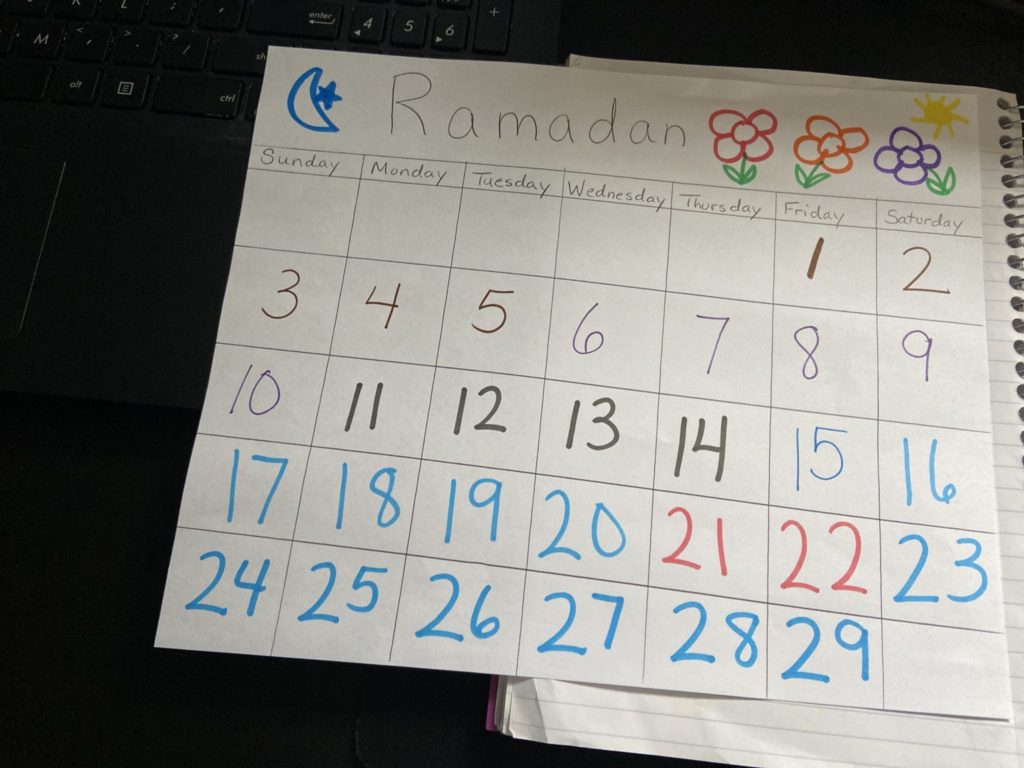 enter
4 5 6 +
M < , > . ? / sh
alt ctrl
Ramadan
Sunday Monday Tuesday Wednesday Thursday Friday Saturday
1 2
3 4 5 6 7 8 9
10 11 12 13 14 15 16
17 18 19 20 21 22 23
24 25 26 27 28 29